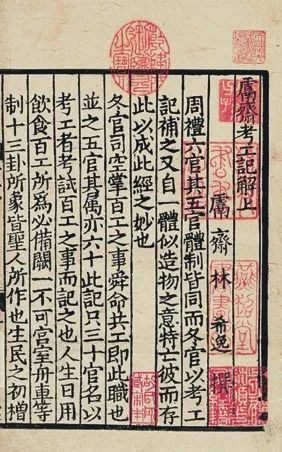 鬳齋考工記解上
鬳齋林希逸撰
周禮六官其五官體制皆同而冬官以考工
記補之又自一體似造物之意特亡彼而存
此以成此經之妙也
冬官司空掌百工之事舜命共工即此職也
並之五官其属亦六十此記只三十官名以
考工者考試百工之事而記之也人生日用
飲食百工所為必備闕一不可宫室舟車等
制十三卦所象皆聖人所作也生民之初增